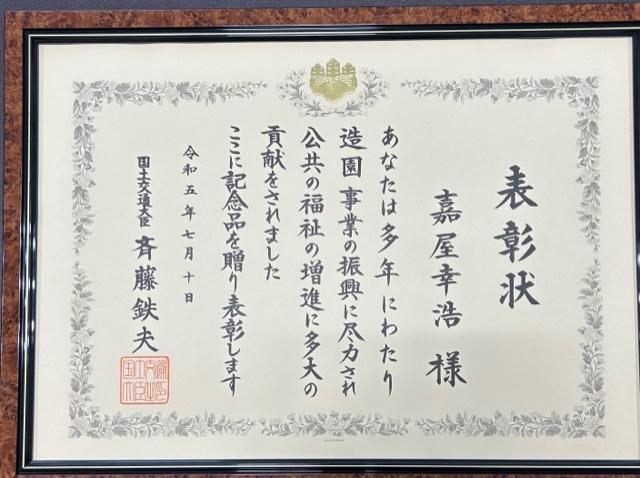 表彰状
嘉屋幸浩 様
あなたは多年にわたり
造園事業の振興に尽力され
公共の福祉の増進に多大の
貢献をされました
ここに記念品を贈り表彰します
令和五年七月十日
国土交通大臣 斉藤鉄夫